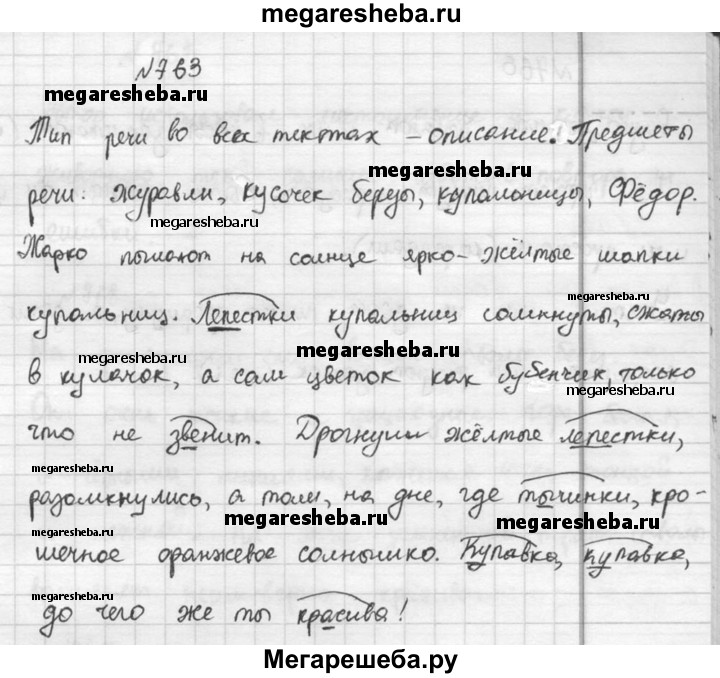 megaresheba.ru
№763
megaresheba.ru
Тип речи во всех текстах – описание. Предметы
megaresheba.ru
речи: журавли, кусочек берёзы, купальницы, Фёдор.
megaresheba.ru
Жарко пылают на солнце ярко-жёлтые шапки
megaresheba.ru
купальниц. Лепестки купальниц сомкнуты, сжаты
megaresheba.ru
megaresheba.ru
в кулачок, а сам цветок как бубенчик, только
megaresheba.ru
что не звенит. Дрогнули жёлтые лепестки,
megaresheba.ru
разомкнулись, а там, на дне, где тычинки, кро-
megaresheba.ru
megaresheba.ru
megaresheba.ru
шечное оранжевое солнышко. Купавка, купавка,
megaresheba.ru
до чего же ты красива!
Мегарешеба.ру